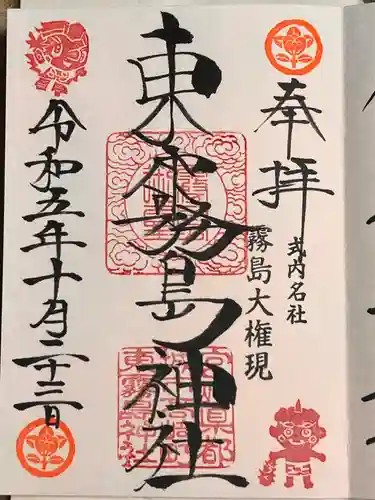 奉拝
式内名社
霧島大権現
東霧島神社
令和五年十月二十三日